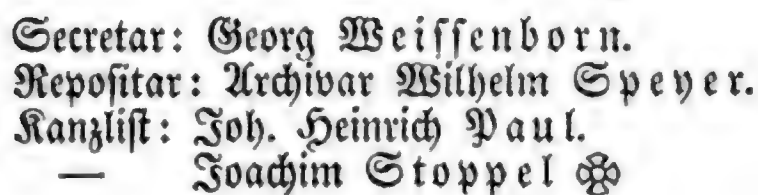 Secretar: Georg Weissenborn.
Repositar: Archivar Wilhelm Speyer.
Kanzlist: Joh. Heinrich Paul.
— Joachim Stoppel